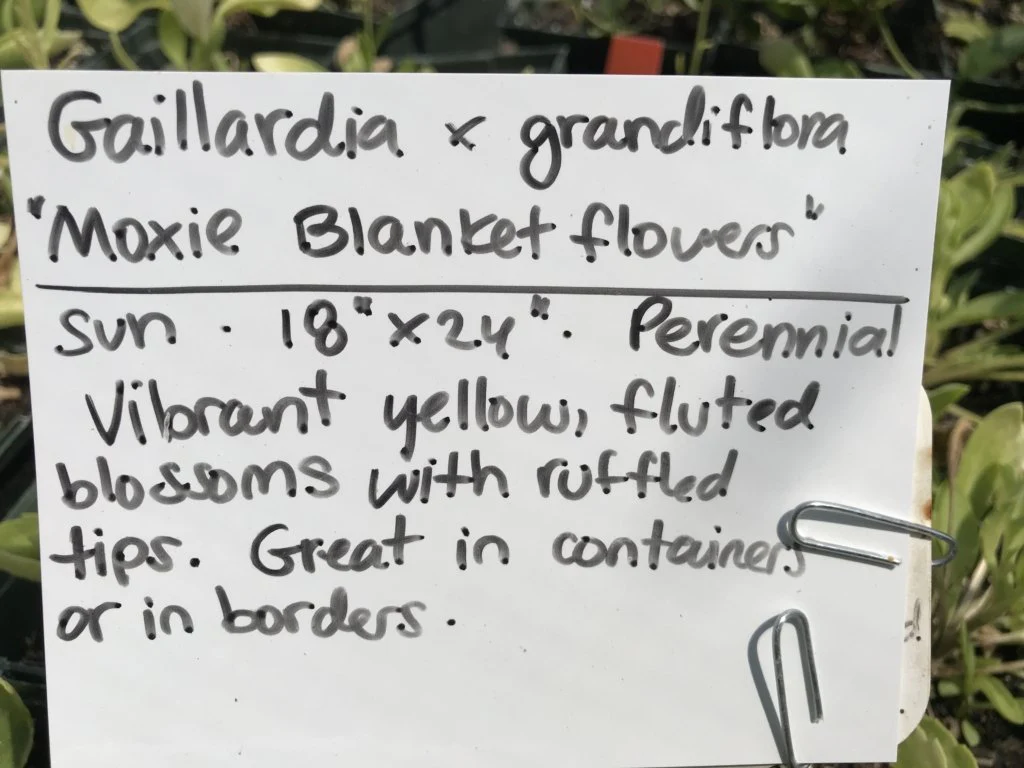 Gaillardia x grandiflora
"Moxie Blanket flowers"
Sun · 18" x 24" · Perennial
Vibrant yellow, fluted
blossoms with ruffled
tips. Great in containers
or in borders.